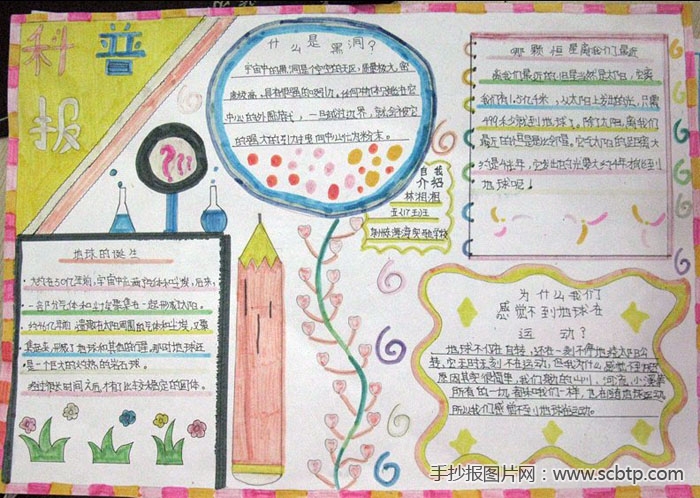 科普
报
什么是黑洞?
宇宙中的黑洞是个空空的天区,质量极大,密
度极高,具有很强的吸引力。任何物体只能在它
中心的外围
一旦越过边界,就会被它
的强大的引力
中心化为粉末。
哪颗恒星离我们最近
离我们最近的恒星当然是太阳,它离
我们有1.5亿千米,从太阳上发出的光,只需
499多少就到地球了。除了太阳,离我们
最近的恒星是比邻星。它与太阳的距离大
约是4光年,它发出的光要大约4年才能到
地球呢!
自我
介绍
林相湘
五(7)班
实验学校
地球的诞生
大约在50亿年前,宇宙中
气体和尘埃,后来,
一部分气体和尘埃聚集在一起形成太阳。
约46亿年前,遗留在太阳周围的气体和尘埃,又聚
集起来形成了地球和其他行星,那时地球还
是一个巨大的灼热的岩石球。
经过很长时间之后,才有了比较稳定的固体。
为什么我们
感觉不到地球在
运动?
地球不仅在自转,还在一刻不停地绕太阳公
转,它无时无刻不在运动,但我为什么感觉不到呢?
原因其实很简单,我们身边的山川、河流、小溪等
所有的一切,都和我们一样,
随地球运动,
所以我们感觉不到地球在运动。
手抄报图片网:www.scbtp.com